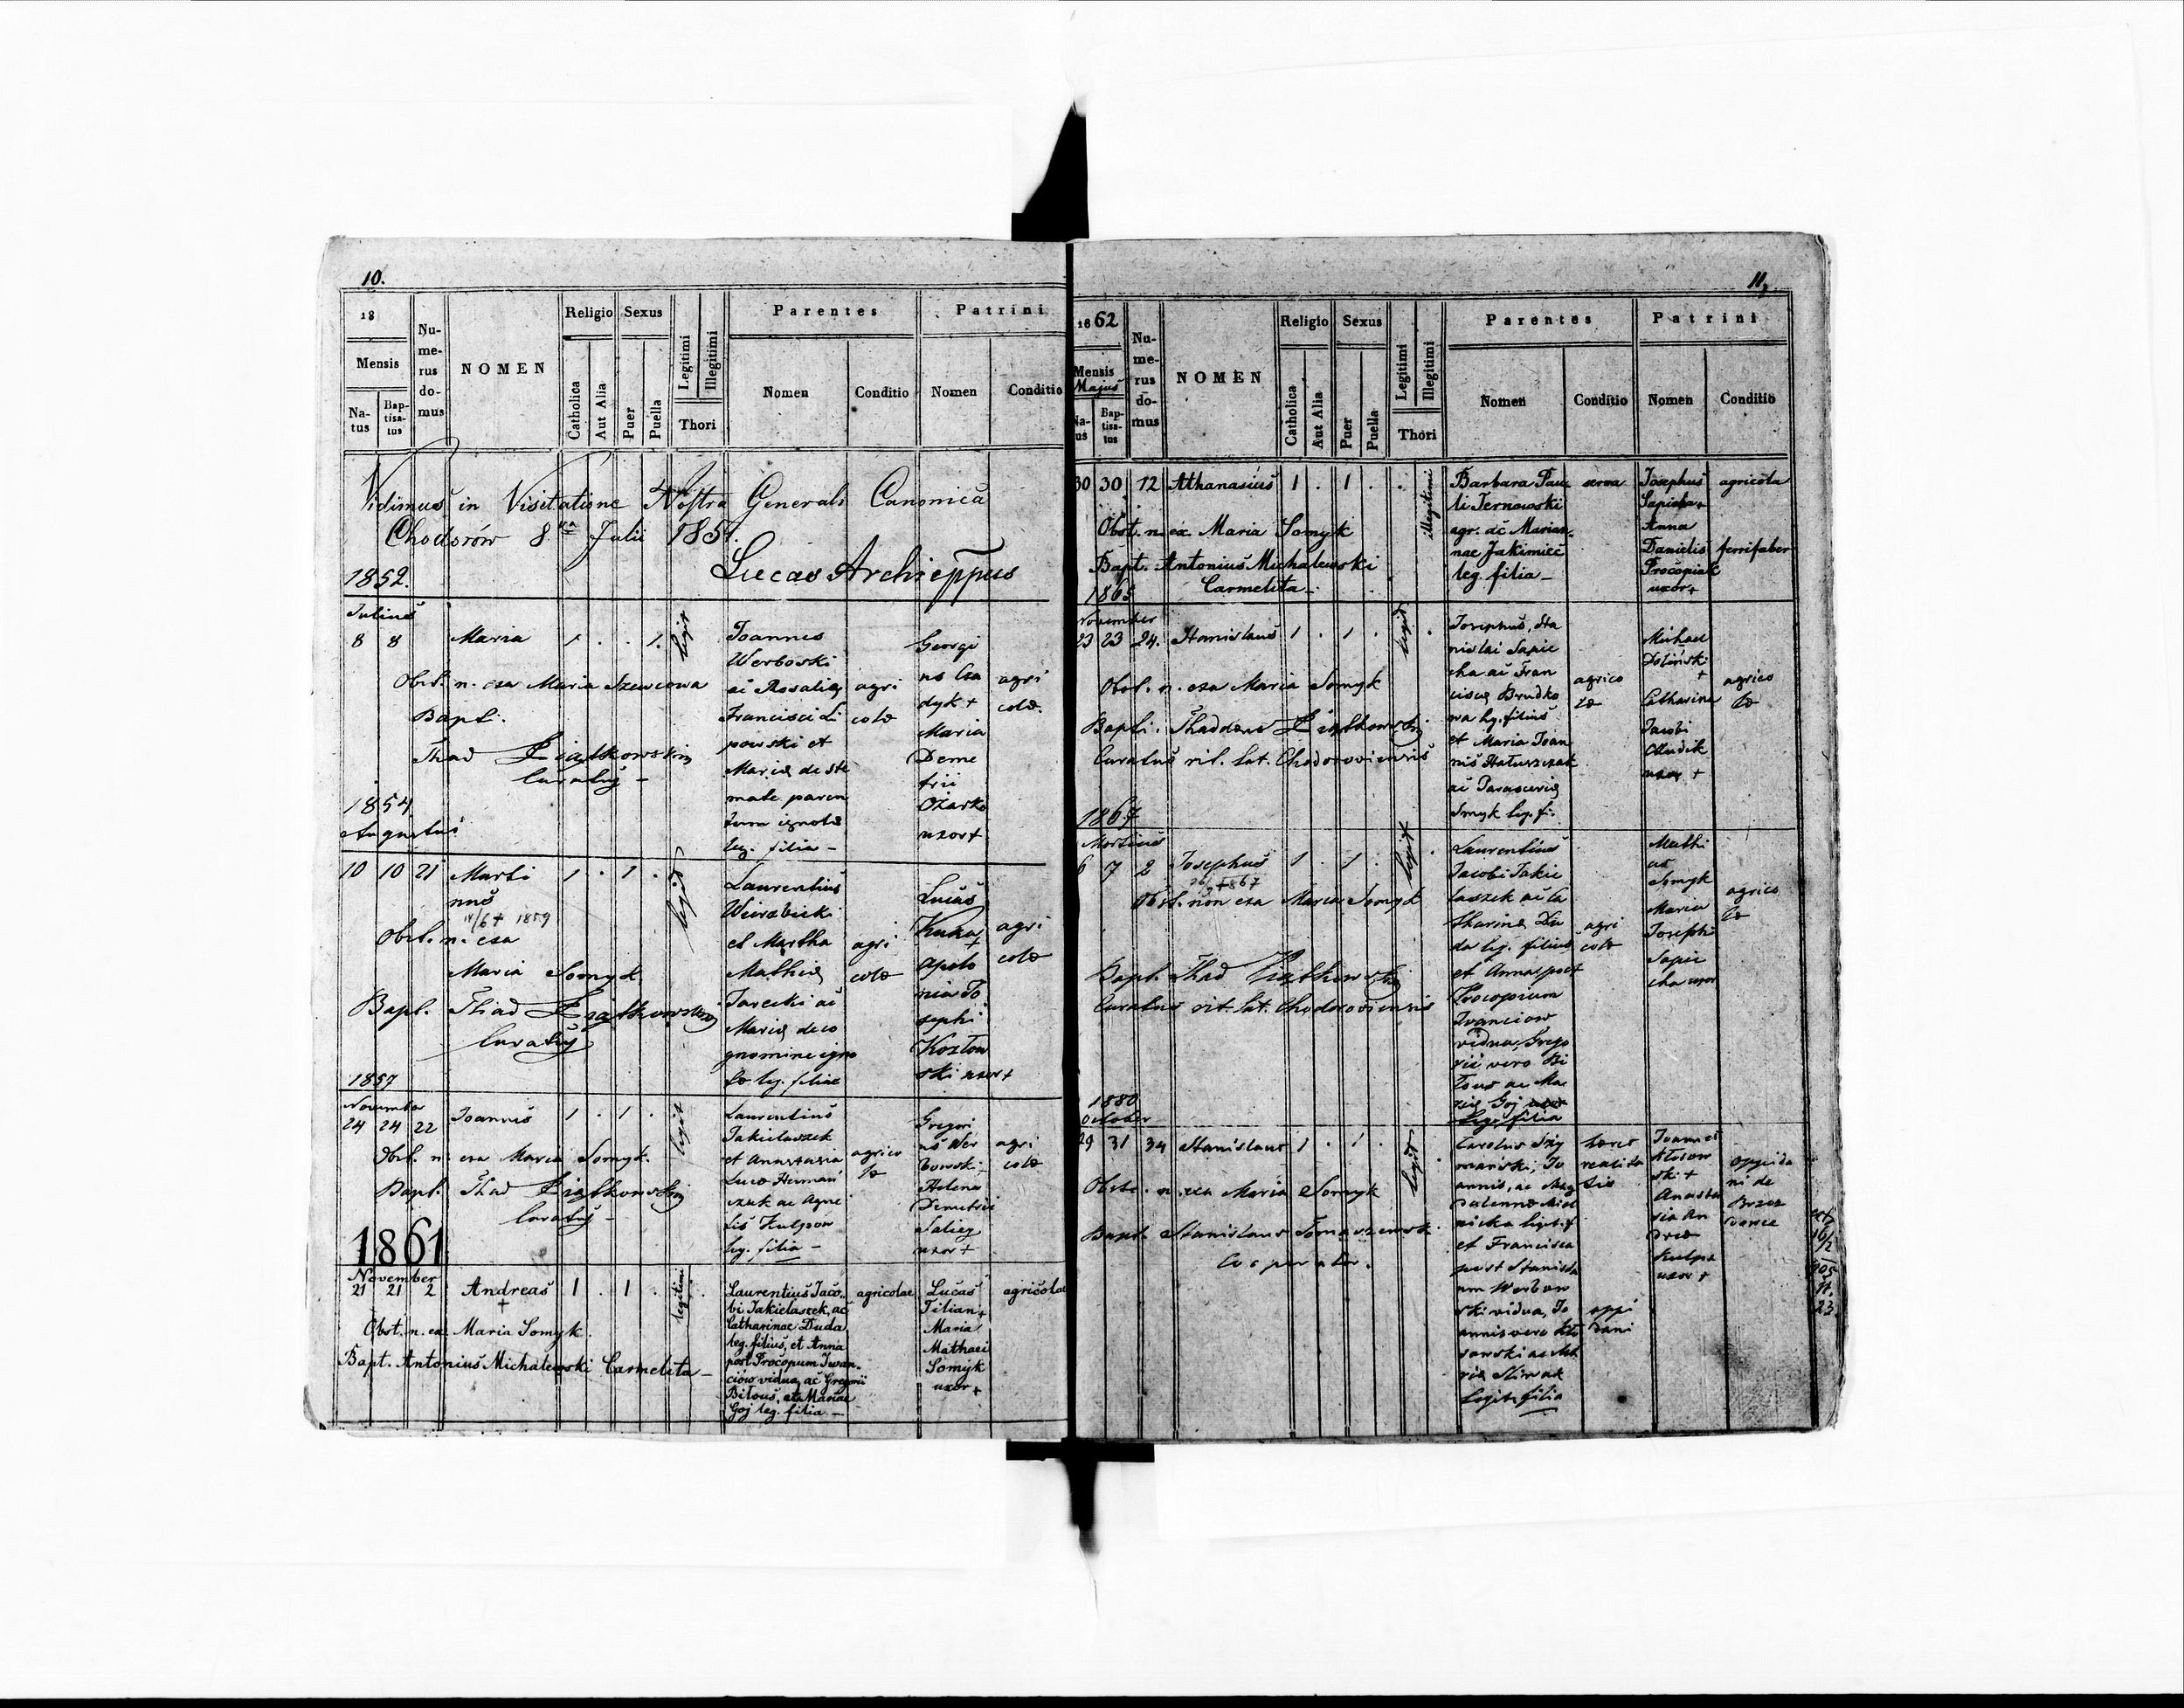 10.
18
Mensis
Na-
tus
Bap-
tisa-
tus
Nu-
me-
rus
do-
mus
NOMEN
Religio
Catholica
Aut Alia
Sexus
Puer
Puella
Legitimi
Illegitimi
Thori
Parentes
Nomen
Conditio
Patrini
Nomen
Conditio
Vidimus in Visitatione Nostra Generali Canonica
Chodorów 8 Julii 185
Lucas Archieppus
1852.
Julius
8 8 Maria 1 . . 1. legit
Obst. n. exa Maria Szewcowa
Bapt.
Thad Ziątkowski
Curatus
Joannes
Werboski
ac Rosalia
Francisci Li
powski et
Maria de ste
mate paren
tum ignota
leg. filia -
agri
colæ
Georgi
us
dyk +
Maria
Deme
trii
Ozarko
uxor +
agri
colæ.
1854
Augustus
10 10 21 Marti
nus
1 . 1 . legit
/6 + 1859
Obst. n. exa
Maria Somyk
Bapt. Thad Ziątkowski
Curatus
Laurentius
Wierzbicki
et Martha
Mathiæ
Jarecki ac
Mariæ de co
gnomine igno
to leg. filiae
agri
colæ
Lucas
Kuka
+
Apolo
nia Jo
sephi
Kozłow
ski uxor +
agri
colæ
1857
November
24 24 22 Joannes 1 . 1 . legit
Obst. n. exa Maria Somyk.
Bapt. Thad Ziątkowski
Curatus -
Laurentius
Jakielaszek
et Anastasia
Lucæ Herman
czuk ac Agne
tis Kulpow
leg. filia -
agrico
læ
Gregori
us Wer
bowski
Helena
Demetrii
Saliez
uxor +
agri
colæ
1861
November
21 21 2 Andreas 1 . 1 . legitimi
+
Obst. n. ex. Maria Somyk.
Bapt. Antonius Michalewski Carmelita -
Laurentius Jaco-
bi Jakielaszek, ac
Catharinae Duda,
leg. filius, et Anna
post Procopum Iwan-
ciow vidua, ac Gregorii
Biłous, et Mariae
Goj leg. filia -
agricolae
Lucas
Tilian +
Maria
Mathaei
Somyk
uxor +
agricolae
11.
1862
Mensis
Majus
Na-
tus
Bap-
tisa-
tus
Nu-
me-
rus
do-
mus
NOMEN
Religio
Catholica
Aut Alia
Sexus
Puer
Puella
Legitimi
Illegitimi
Thori
Parentes
Nomen
Conditio
Patrini
Nomen
Conditio
30 30 12 Athanasius 1 . 1 . . illegitimi
Obst. n. ex. Maria Somyk
Bapt. Antonius Michalewski
Carmelita -
Barbara Pau
li Ternawski
agr. ac Marian-
nae Jakimiec
leg. filia -
serva
Josephus
Sapicha +
Anna
Danielis
Procopiak
uxor +
agricola
ferrifaber
1865
November
23 23 24. Stanislaus 1 . 1 . legit .
Obst. n. exa Maria Somyk
Bapti. Thaddæus Ziątkowski
Curatus rit. lat. Chodoroviensis
Josephus, Sta
nislai Sapie
cha ac Fran
ciscæ Brudko
wa leg. filius
et Maria Joan
nis Hałuszczak
ac Parasceviæ
Smyk leg. fi.
agrico
læ
Michael
Doliński
+
Catharina
Jacobi
Chudik
uxor +
agrico
læ
1867
Martius
6 7 2 Josephus 1 . 1 . legit .
+ 867
Obst. non exa Maria Somyk
Bapt. Thad Ziątkowski
Curatus rit. lat. Chodoroviensis
Laurentius
Jacobi Jakie
laszek ac Ca
tharinæ Du
da leg. filius
et Anna post
Procopium
Iwanciow
vidua, Grego
rii vero Bi
łous ac Ma
riæ Goj
Leg. filia
agri
colæ
Mathi
as
Smyk
Maria
Josephi
Sapie
cha uxor
agrico
læ
1880
October
29 31 34 Stanislaus 1 . 1 . legit .
Obste. n. exa Maria Somyk
Bapt. Stanislaus Tomaszewski
Cooperator.
Carolus Szy
mański, Jo
annis, ac Mag
dalennæ
nicka legit. f
et Francisca
post Stanisla
um Werbow
ski vidua, Jo
annis vero Kło
sowski ac Ma
riæ Sliwak
Legit. filia
realita
tis
oppi
dani
Joannes
Kłosow
ski +
Anasta
sia An
dreæ
Kulpa
uxor +
oppida
ni de
Brzoz
dowce
16/2
905
N.
23.